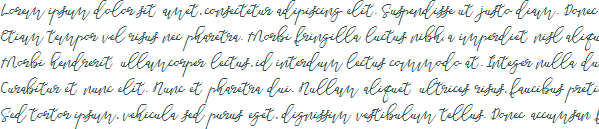 Lorem ipsum dolor sit amet, consectetur adipiscing elit. Suspendisse ut justo diam. Donec
Etiam tempor vel risus nec pharetra. Morbi fringilla luctus nibh, a imperdiet nisl aliqu
Morbi hendrerit ullamcorper lectus, id interdum lectus commodo at. Integer nulla du
Curabitur et nunc elit. Nunc et pharetra dui. Nullam aliquet ultrices risus, faucibus preti
Sed tortor ipsum, vehicula sed purus eget, dignissim vestibulum tellus. Donec accumsan f